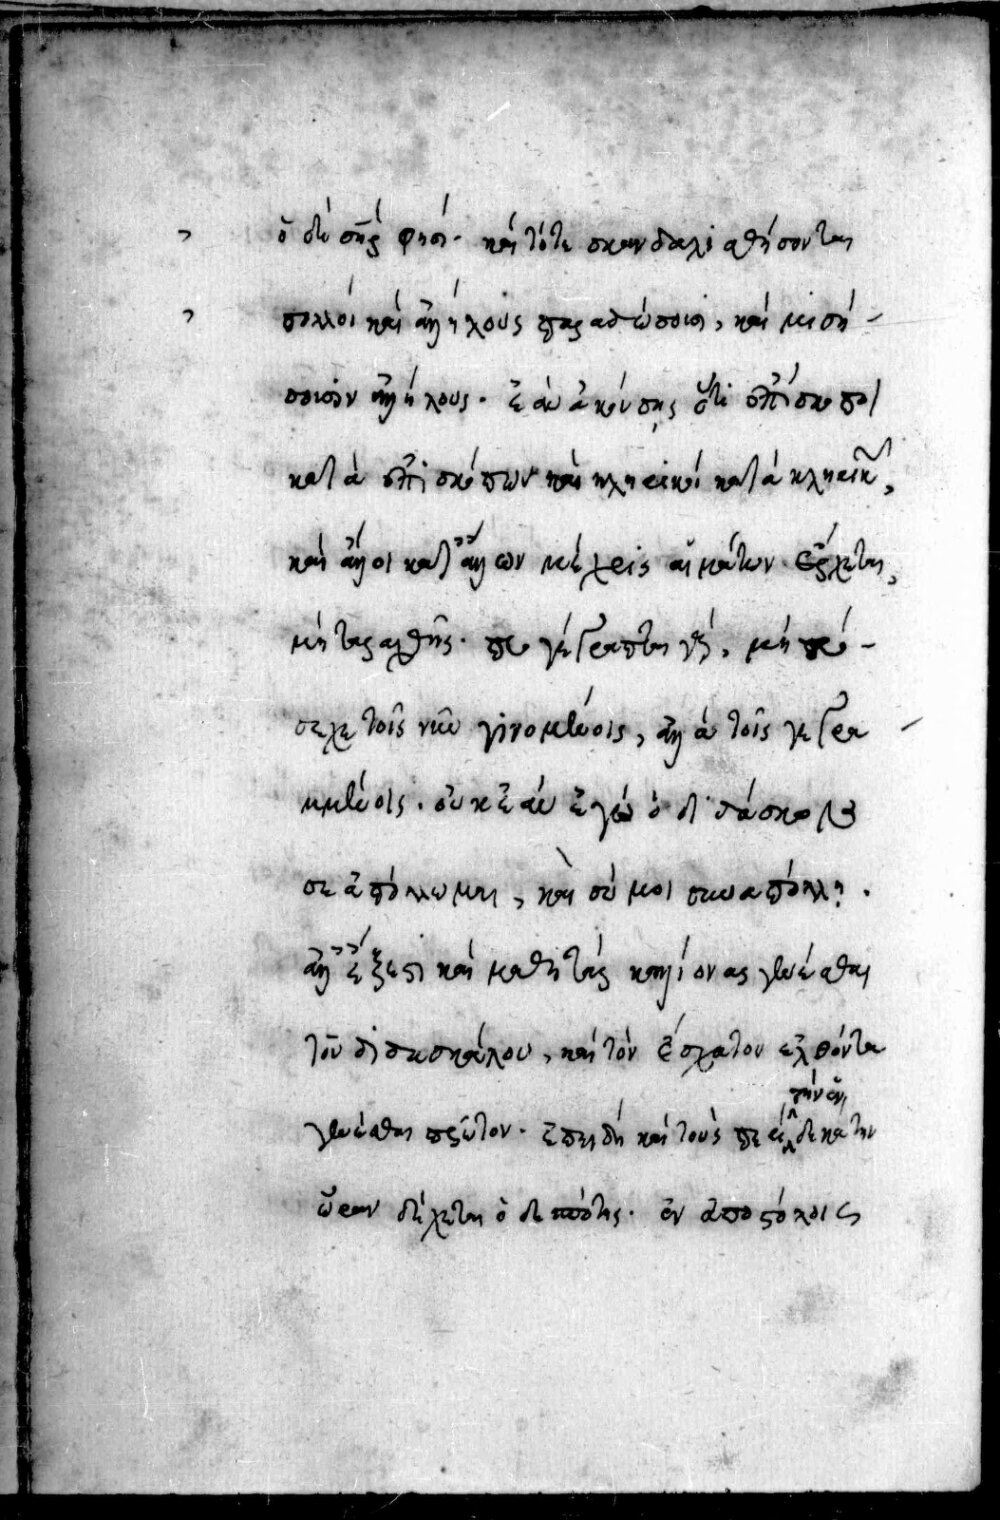 ὁ δὲ σὴρ φησί· καὶ τότε σκανδαλισθήσονται
πολλοὶ καὶ ἀλλήλους παραδώσουσι, καὶ μισή-
σουσιν ἀλλήλους· ἐὰν ἀκούσῃς ὅτι ἐπίσκοποι
κατὰ ἐπισκόπων καὶ κληρικοὶ κατὰ κληρικῶν,
καὶ λαοὶ κατὰ λαῶν μέχρις αἱμάτων ἔρχεται,
μὴ ταραχθῇς· προγέγραπται γάρ, μὴ πρό-
σεχε τοῖς νῦν γινομένοις, ἀλλὰ τοῖς γεγρα
μμένοις· οὐκ ἐὰν ἐγὼ ὁ διδάσκαλος
σε ἀπόλλυμαι, καὶ σύ μοι συναπόλλῃ·
ἀλλ' ἔξεστι καὶ μαθητὰς καλλίονας γενέσθαι
τοῦ διδασκάλου, καὶ τὸν ἔσχατον ἐλθόντα
γενέσθαι πρῶτον· ἐπειδὴ καὶ τοὺς περὶ τὴν ἑνδεκάτην
ὥραν δέχεται ὁ δεσπότης· ἐν ἀποστόλοις